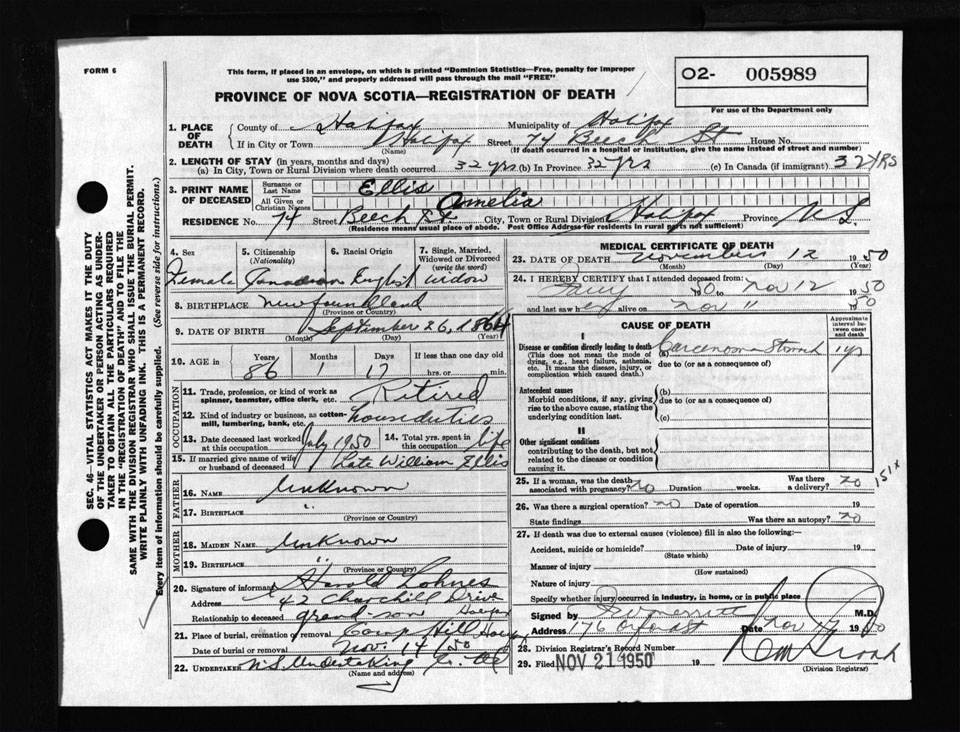 FORM 6
This form, if placed in an envelope, on which is printed "Dominion Statistics—Free, penalty for improper
use $300," and properly addressed will pass through the mail "FREE".
O2- 005989
For use of the Department only
PROVINCE OF NOVA SCOTIA—REGISTRATION OF DEATH
1. PLACE OF DEATH
County of Halifax Municipality of Halifax
If in City or Town Halifax Street 74 Beech St House No.
(Name) (If death occurred in a hospital or institution, give the name instead of street and number)
2. LENGTH OF STAY (in years, months and days)
(a) In City, Town or Rural Division where death occurred 32 yrs (b) In Province 32 yrs (c) In Canada (if immigrant) 32 yrs
3. PRINT NAME OF DECEASED
Surname or Last Name Ellis
All Given or Christian Names Amelia
RESIDENCE No. 74 Street Beech St. City, Town or Rural Division Halifax Province N S.
(Residence means usual place of abode. Post Office Address for residents in rural parts not sufficient)
4. Sex Female
5. Citizenship (Nationality) Canadian
6. Racial Origin English
7. Single, Married, Widowed or Divorced (write the word) widow
8. BIRTHPLACE Newfoundland
(Province or Country)
9. DATE OF BIRTH September 26, 1864
(Month) (Day) (Year)
10. AGE in Years 86 Months 1 Days 17 If less than one day old hrs. or min.
OCCUPATION
11. Trade, profession, or kind of work as spinner, teamster, office clerk, etc. Retired
12. Kind of industry or business, as cotton-mill, lumbering, bank, etc. house duties
13. Date deceased last worked at this occupation July 1950
14. Total yrs. spent in this occupation life
15. If married give name of wife or husband of deceased Late William Ellis
FATHER
16. NAME Unknown
17. BIRTHPLACE "
(Province or Country)
MOTHER
18. MAIDEN NAME Unknown
19. BIRTHPLACE "
(Province or Country)
20. Signature of informant Harold Lohnes
Address 42 Churchill Drive
Relationship to deceased grand-son Halifax
21. Place of burial, cremation or removal Camp Hill
Date of burial or removal Nov. 14/50
22. UNDERTAKER N.S. Undertaking
(Name and address)
MEDICAL CERTIFICATE OF DEATH
23. DATE OF DEATH November 12 1950
(Month) (Day) (Year)
24. I HEREBY CERTIFY that I attended deceased from:
50 to Nov 12 1950
and last saw her alive on Nov 11 50
CAUSE OF DEATH
Approximate interval between onset and death
I
Disease or condition directly leading to death
(This does not mean the mode of dying, e.g., heart failure, asthenia, etc. It means the disease, injury, or complication which caused death.)
(a) Carcinoma Stomach 1 yr
due to (or as a consequence of)
Antecedent causes
Morbid conditions, if any, giving rise to the above cause, stating the underlying condition last.
(b)
due to (or as a consequence of)
(c)
II
Other significant conditions contributing to the death, but not related to the disease or condition causing it.
25. If a woman, was the death associated with pregnancy? no Duration weeks. Was there a delivery? no
151X
26. Was there a surgical operation? no Date of operation 19
State findings Was there an autopsy? no
27. If death was due to external causes (violence) fill in also the following:—
Accident, suicide or homicide? Date of injury 19
(State which)
Manner of injury
(How sustained)
Nature of injury
Specify whether injury occurred in industry, in home, or in public place
Signed by M.D.
Address 176 Date Nov 17 1950
28. Division Registrar's Record Number
29. Filed NOV 21 1950
(Division Registrar)
SEC. 46—VITAL STATISTICS ACT MAKES IT THE DUTY
OF THE UNDERTAKER OR PERSON ACTING AS UNDER-
TAKER TO OBTAIN ALL THE PARTICULARS REQUIRED
IN THE "REGISTRATION OF DEATH" AND TO FILE THE
SAME WITH THE DIVISION REGISTRAR WHO SHALL ISSUE THE BURIAL PERMIT.
WRITE PLAINLY WITH UNFADING INK. THIS IS A PERMANENT RECORD.
Every item of information should be carefully supplied. (See reverse side for instructions.)